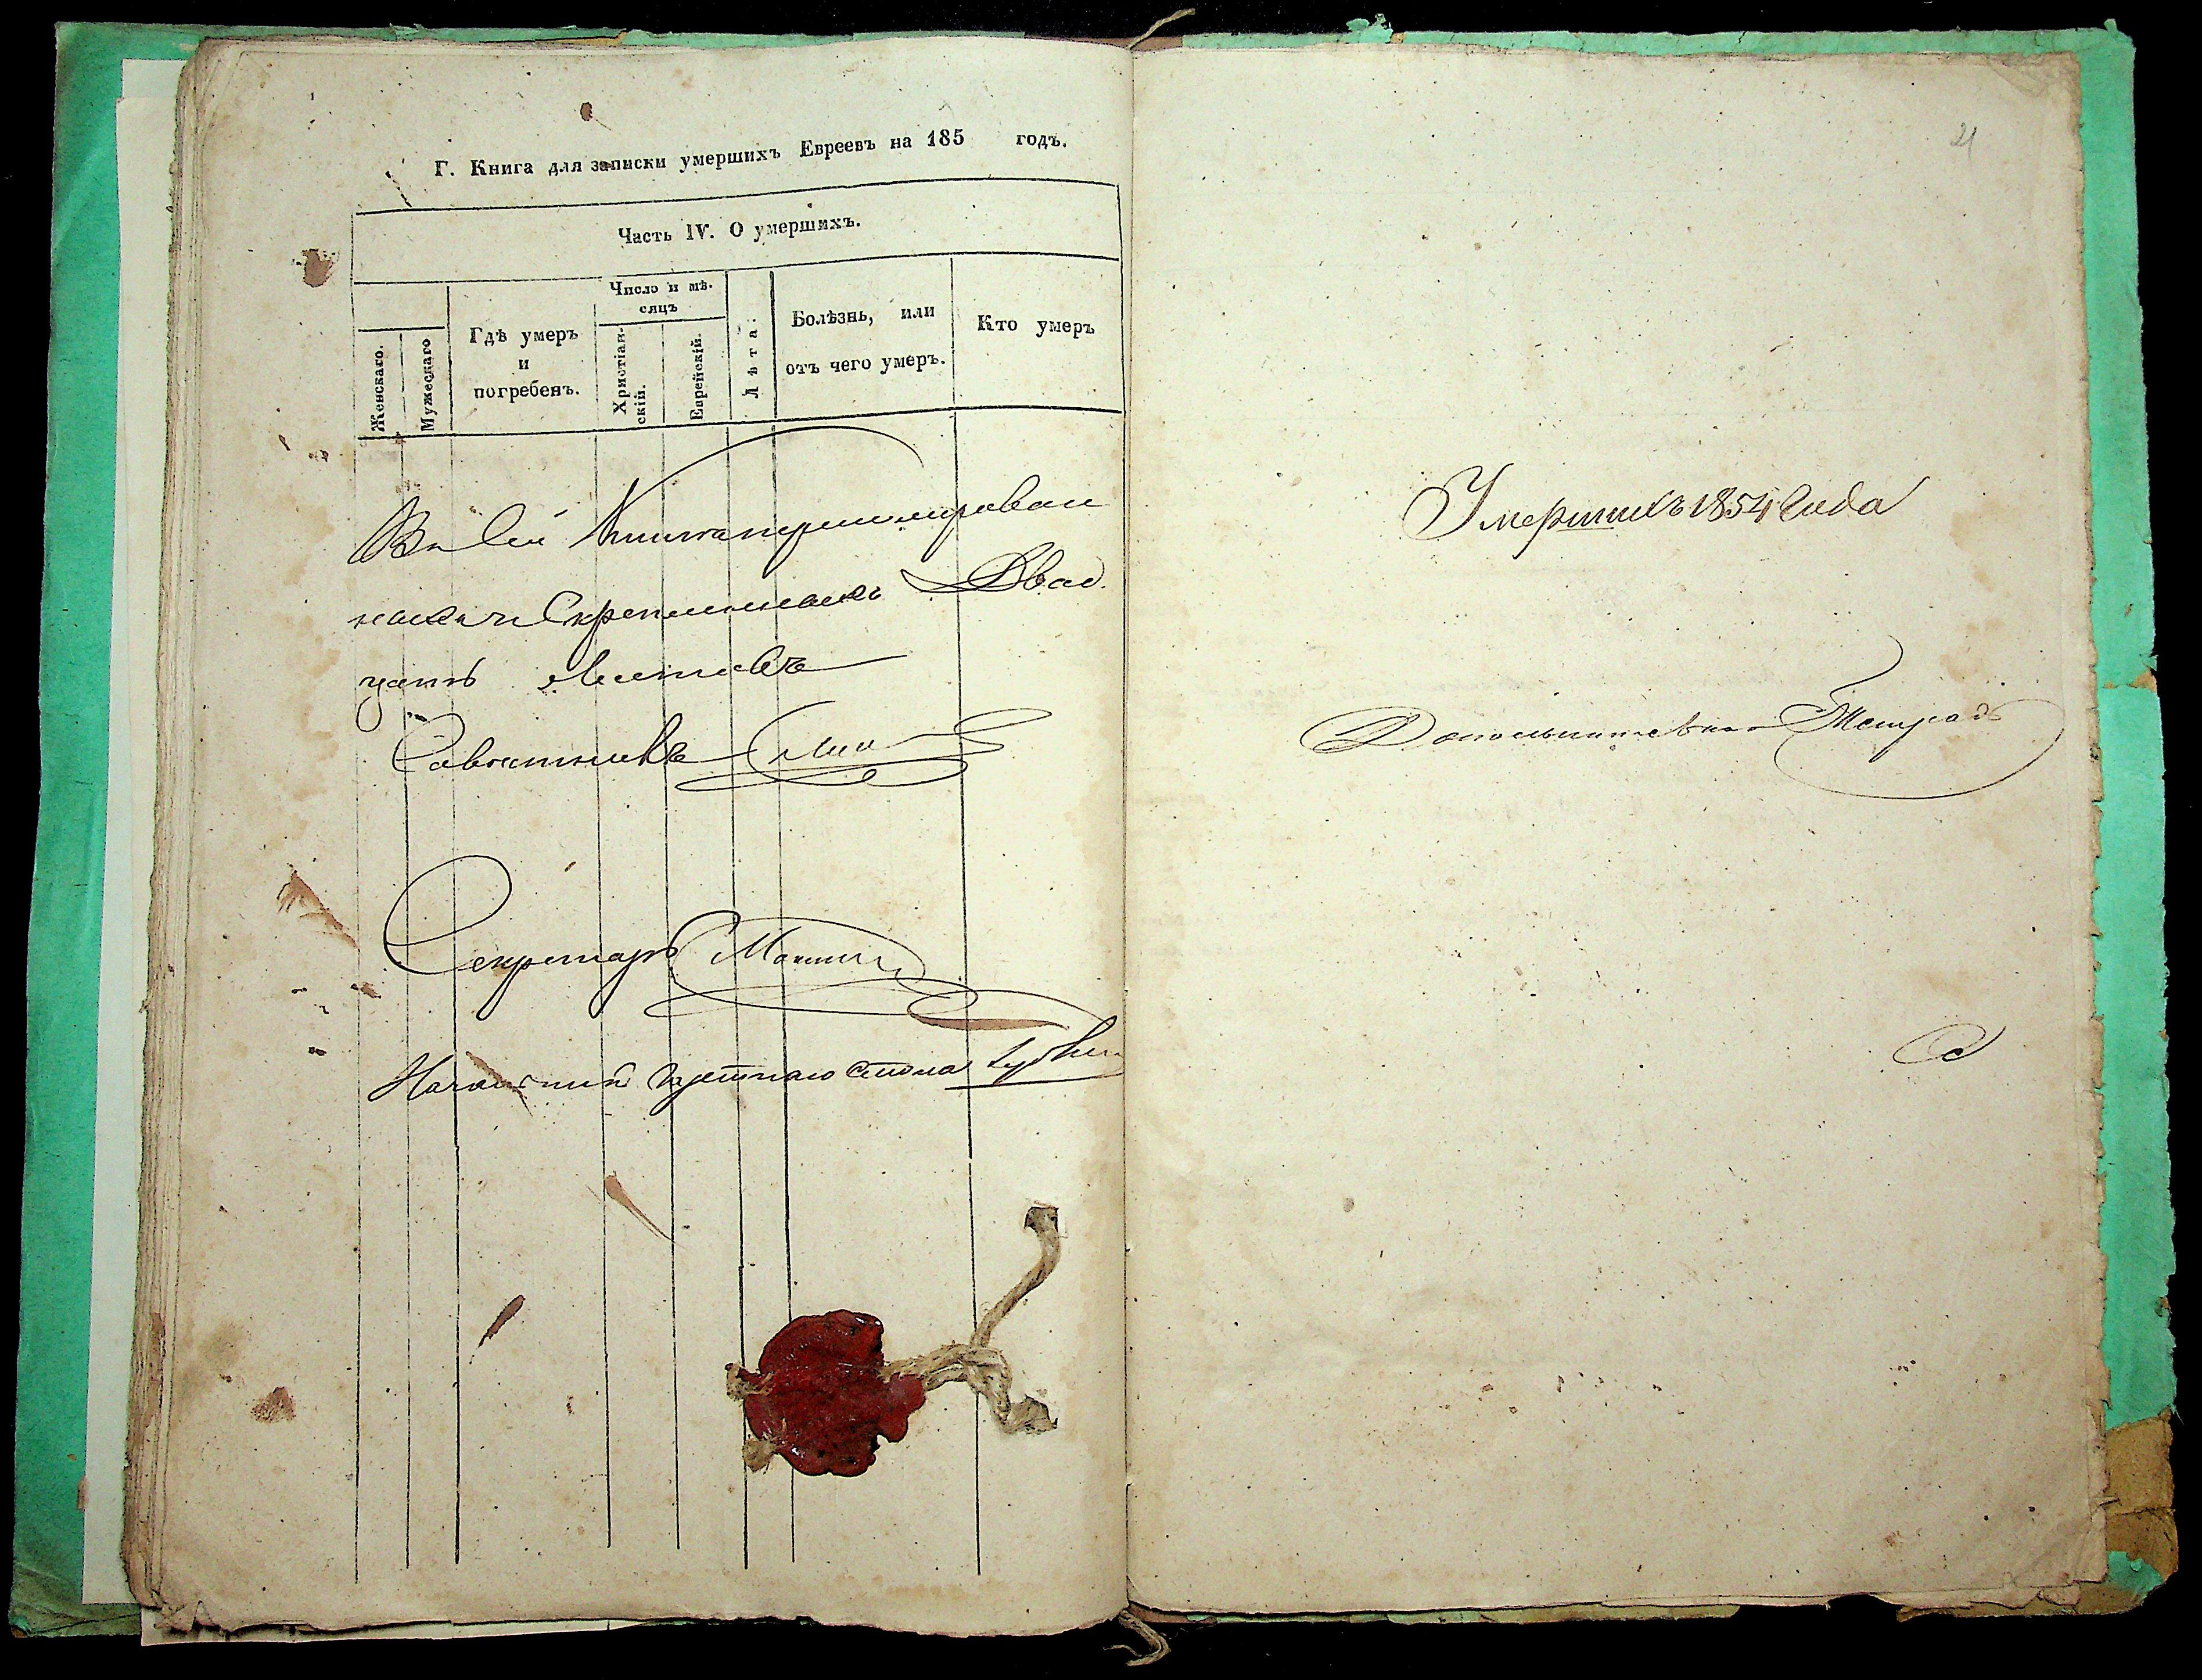 Г. Книга для записки умершихъ Евреевъ на 185 годъ.
Часть IV. О умершихъ.
Женскаго.
Мужескаго
Гдѣ умеръ
и
погребенъ.
Число и мѣ-
сяцъ
Христіан-
скій.
Еврейскій.
Лѣта.
Болѣзнь, или
отъ чего умеръ.
Кто умеръ
Въ сей Книге перенумерован
ныхъ и Скрепленныхъ Двад
цать Листовъ
Советникъ
Секретарь
Начальникъ Газетнаго Стола
21
Умершихъ 1854 Года
Дополнительная Тетрадь